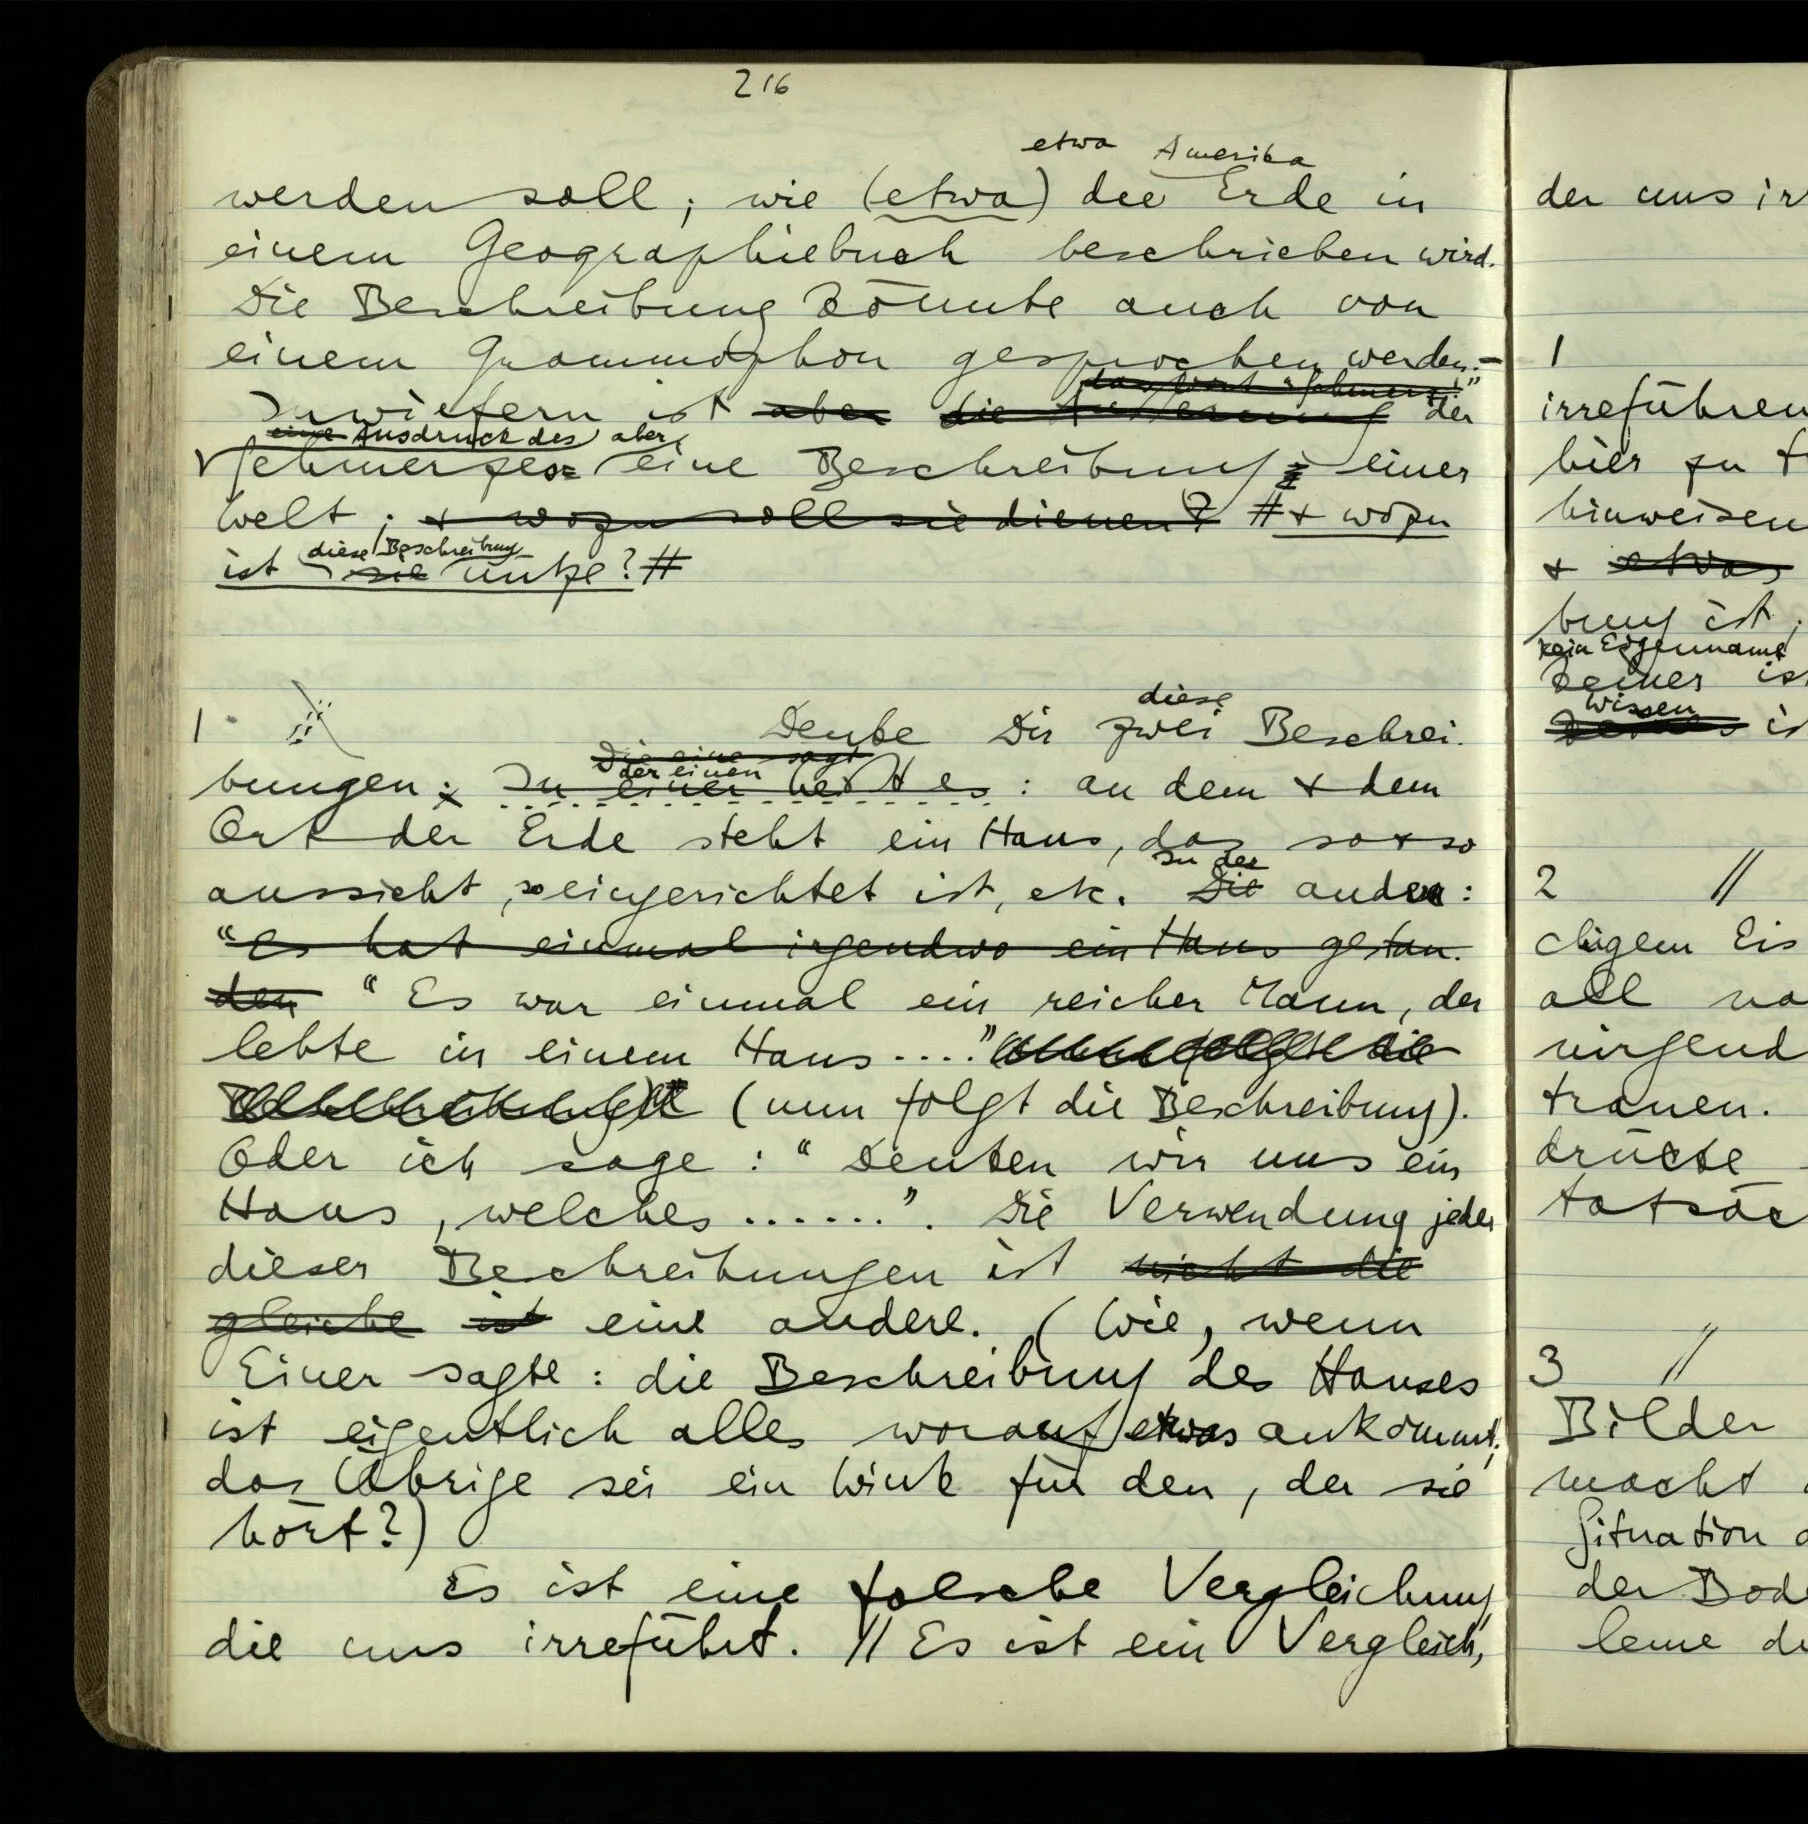 216
etwa Amerika
werden soll; wie (etwa) die Erde in
einem Geographiebuch beschrieben wird.
Die Beschreibung könnte auch von
einem Grammophon gesprochen werden. –
das Wort "Schmerz"
Inwiefern ist aber die Äußerung der
eine Ausdruck des aber
Schmerzes eine Beschreibung einer
Welt; & wozu soll sie dienen? # & wozu
diese Beschreibung
ist sie nütze? #
diese
1 Denke Dir zwei Beschrei-
Die eine sagt
der einen
bungen: In einer heißt es: an dem & dem
Ort der Erde steht ein Haus, das so & so
In der
aussieht, so eingerichtet ist, etc. Die andere:
"Es hat einmal irgendwo ein Haus gestan-
den "Es war einmal ein reicher Mann, der
lebte in einem Haus ...."
(nun folgt die Beschreibung).
Oder ich sage: "Denken wir uns ein
Haus, welches ......". Die Verwendung jeder
dieser Beschreibungen ist nicht die
gleiche ist eine andere. (Wie, wenn
Einer sagte: die Beschreibung des Hauses
ist eigentlich alles worauf etwas ankommt;
das Übrige sei ein Wink für den, der sie
hört?)
Es ist eine falsche Vergleichung
die uns irreführt. // Es ist ein Vergleich,
der uns ir
1
irreführen
hier zu
hinweisen
& etwas
bung ist,
kein Eigenname
keiner is
wissen
is
2 //
chigem Eis
all
nirgend
trauen.
drücke
tatsäc
3 //
Bilder
macht
Situation
der Bod
lerne